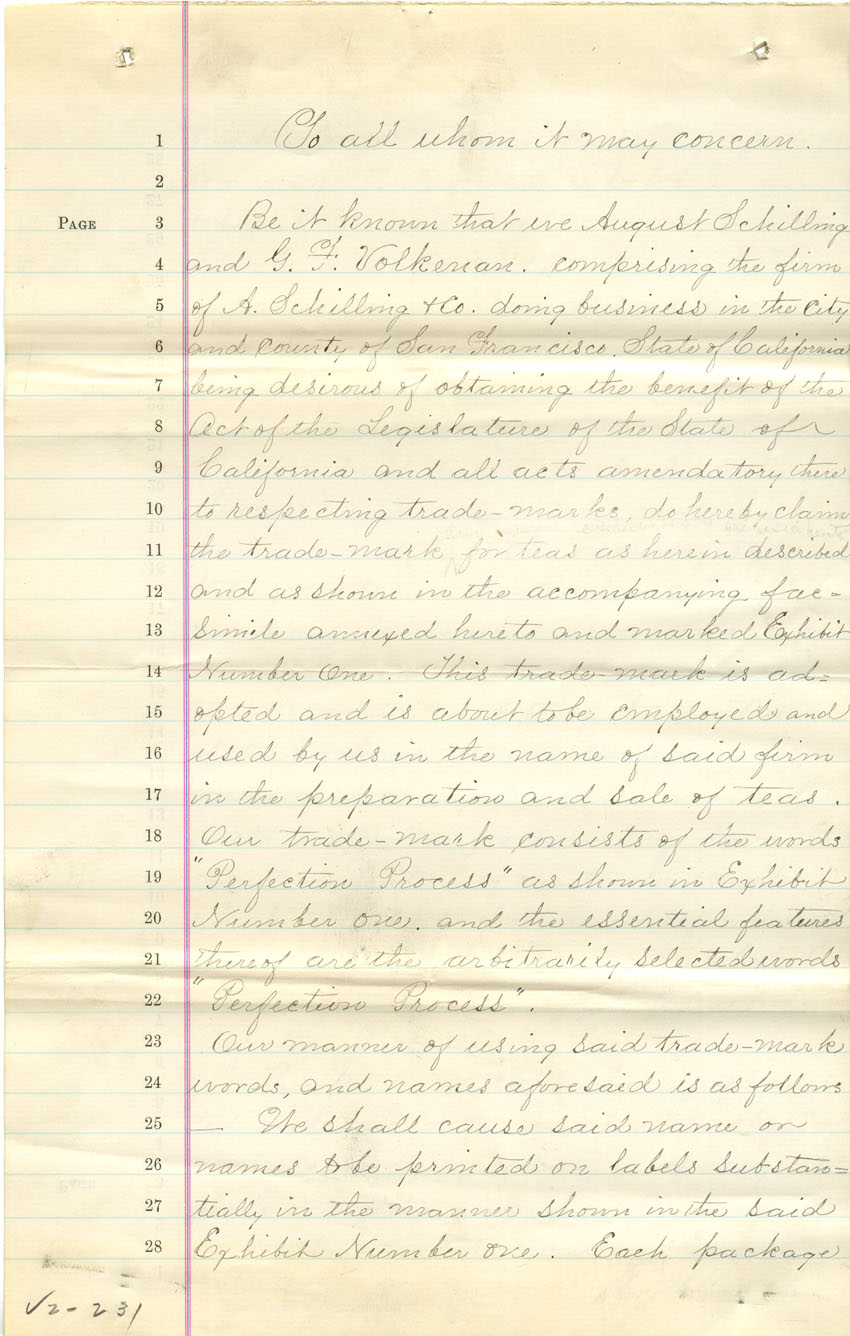 1 To all whom it may concern.
2
PAGE 3 Be it known that we August Schilling
4 and G. F. Volkeman. comprising the firm
5 of A. Schilling & Co. doing business in the City
6 and County of San Francisco. State of California
7 being desirous of obtaining the benefit of the
8 Act of the Legislature of the State of
9 California and all acts amendatory there
10 to respecting trade-marks, do hereby claim
11 the trade-mark for teas as herein described
12 and as shown in the accompanying fac=
13 simile annexed hereto and marked Exhibit
14 Number One. This trade-mark is ad=
15 opted and is about to be employed and
16 used by us in the name of said firm
17 in the preparation and sale of teas.
18 Our trade-mark consists of the words
19 "Perfection Process" as shown in Exhibit
20 Number One. and the essential features
21 thereof are the arbitrarily selected words
22 "Perfection Process".
23 Our manner of using said trade-mark
24 words, and names aforesaid is as follows
25 — We shall cause said name or
26 names to be printed on labels substan=
27 tially in the manner shown in the said
28 Exhibit Number One. Each package
V2-231